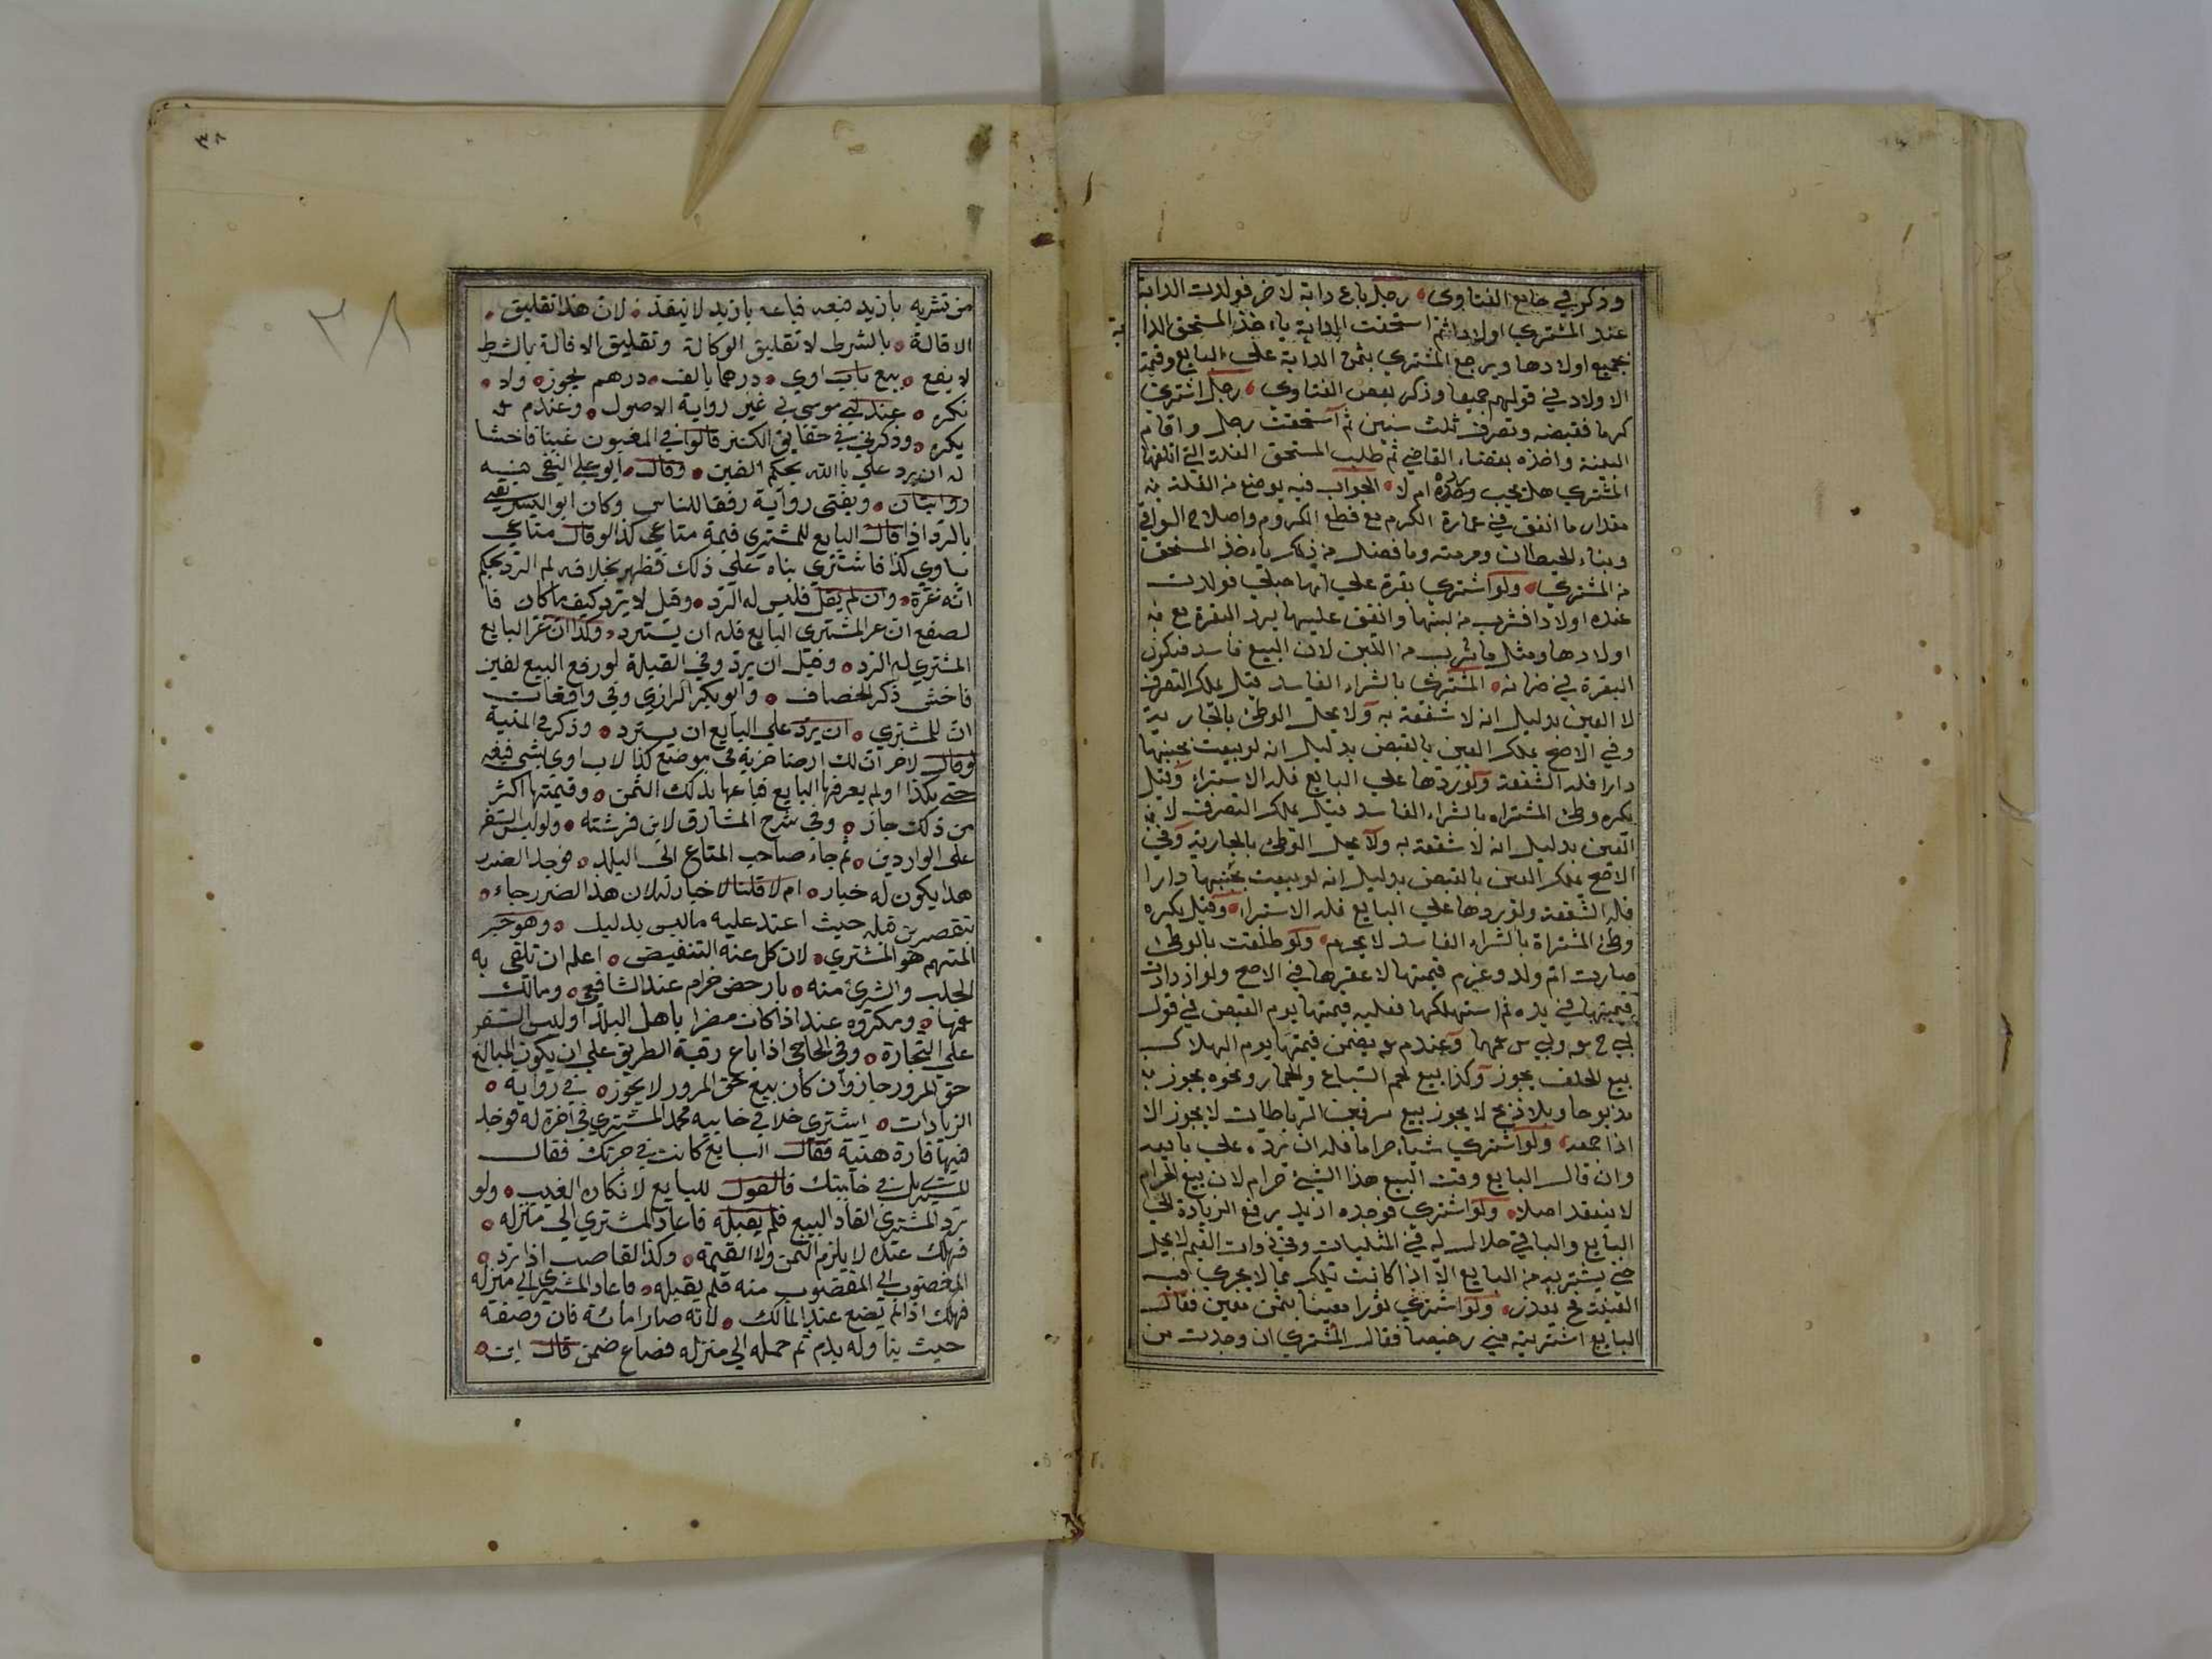 وذكر في جامع الفتاوى رجل باع دابة لاخر فولدت الدابة
عند المشتري اولادا ثم استحقت الدابة ياءخذ المستحق الدابة
بجميع اولادها ويرجع المشتري بثمن الدابة على البايع وقيمة
الاولاد في قولهم جميعا وذكر بعض الفتاوي رجل اشترى
كرما فقبضه وتصرف ثلث سنين ثم استحقت رجل واقام
البينة واخذه بقضاء القاضي ثم طلب المستحق الغلة التي اتلفها
المشتري هل يجب رده ام لا الجواب فيه يوضع من الغلة
مقدار ما انفق في عمارة الكرم مع قطع الكروم واصلاح السواقي
وبناء الحيطان ومرمته وما فضل من ذلك ياءخذ المستحق
من المشتري ولو اشترى بقرة على انها حبلى فولدت
عنده اولادا فشرب من لبنها وانفق عليها يرد البقرة مع
اولادها ومثل ما شرب من اللبن لان البيع فاسد فيكون
البقرة في ضمانه المشترى بالشراء الفاسد قيل يملك التصرف
لا العين بدليل انه لا شفعة به ولا يحل الوطئ بالجارية
وفي الاصح يملك العين بالقبض بدليل انه لو بيعت بجنبها
دارا فله الشفعة ولو ردها على البايع فله الاستبراء وقيل
يكره وطئ المشتراه بالشراء الفاسد قيل يملك التصرف لا
العين بدليل انه لا شفعة به ولا يحل الوطئ بالجارية وفي
الاصح يملك العين بالقبض بدليل انه لو بيعت بجنبها دارا
فله الشفعة ولو ردها على البايع فله الاستبراء وقيل يكره
وطئ المشتراة بالشراء الفاسد لا يحرم ولو طلقت بالوطئ
صارت ام ولد وغرم قيمتها لا عقرها في الاصح ولو ازدادت
قيمتها في يده ثم استهلكها فعليه قيمتها يوم القبض في قول
وعندم يضمن قيمتها يوم الهلاك
بيع يجوز وكذا بيع لحم السباع والحمار ونحوه يجوز
مذبوحا وبلا ذبح لا يجوز بيع الرباطات لا يجوز الا
اذا جمعه ولو اشترى شياء حراما فله ان يرده على بايعه
وان قال البايع وقت البيع هذا الشئ حرام لان بيع الحرام
لا ينعقد اصلا ولو اشترى فوجده ازيد يرفع الزيادة الى
البايع والباقي حلال له في المثليات وفي ذوات القيم لا يحل
حتى يشتريه من البايع الا اذا كانت تلك مما لا يجري فيه
ولو اشترى ثورا معينا بثمن معين فقال
البايع اشتريته مني رخيصا فقال المشتري ان وجدت من
٣٨
٣٨
من تشريه بازيد فبعه فباعه بازيد لا ينفذ لان هذا تعليق
الاقالة بالشرط لا تعليق الوكالة وتعليق الاقالة بالشرط
لا يصح بيع باب اوي درهما بالف درهم يجوز ولا
يكره عند في غير رواية الاصول وعندم
يكره وذكر في حقايق الكنز قالوا في المغبون غبنا فاحشا
له ان يرد على بايعه بحكم الغبن وقال ابو علي النسفي فيه
روايتان ويفتى رواية رفقا للناس وكان ابو اليسر يفتي
بالرد اذا قال البايع للمشتري قيمة متاعي كذا لو قال متاعي
يساوي كذا فاشترى بناه على ذلك فظهر بخلافه لم الرد بحكم
انه غره وان لم يقل فليس له الرد وقيل لا يرد كيف ما كان
ان غر المشتري البايع فله ان يسترد وكذا ان غر البايع
المشتري له الرد وقيل ان يرد وفي القيلة لو رفع البيع لغبن
فاحش ذكر الخصاف وابو بكر الرازي وفي واقعات
ان للمشتري ان يرد على البايع ان يسترد وذكر في المنية
لو قال لاخر ان لك ارضا خربة في موضع كذا لا يساوي بشئ فبعه
بكذا ولم يعرفها البايع فباعها بذلك الثمن وقيمتها اكثر
من ذلك جاز وفي شرح المشارق لابن فرشته ولو لبس السعر
على الواردين ثم جاء صاحب المتاع الى البلد فوجد الضرر
هل يكون له خيار ام لا قلنا لا خيار له لان هذا الضرر جاء
تقصير من قبله حيث اعتمد عليه ما ليس بدليل وهو خبر
المتهم هو المشتري لان كل عنه التنفيض اعلم ان تلقي به
الجلب والشرئ منه بارخص حرام عند الشافعي ومالك
ومكروه عند اذا كان مضرا باهل البلد او لبس السعر
على التجارة وفي الحاجي اذا باع رقبة الطريق على ان يكون للبايع
حق المرور جاز وان كان بيع حق المرور لا يجوز في رواية
الزيادات اشترى خلا في خابيه المشتري في له فوجد
فيها فارة ميتة فقال البايع كانت في جرتك فقال
المشتري بل في خابيتك فالقول للبايع لانكاره العيب ولو
رد المشتري البيع فلم يقبله فاعاد المشتري الى منزله
فهلك عنده لا يلزم الثمن ولا القيمة وكذا الغاصب اذا رد
المغصوب الى المغصوب منه فلم يقبله فاعاد المشتري الى منزله
فهلك اذا لم يضع عند المالك لانه صار امانة فان وضعه
حيث يناوله يده ثم حمله الى منزله فضاع ضمن قال ابن